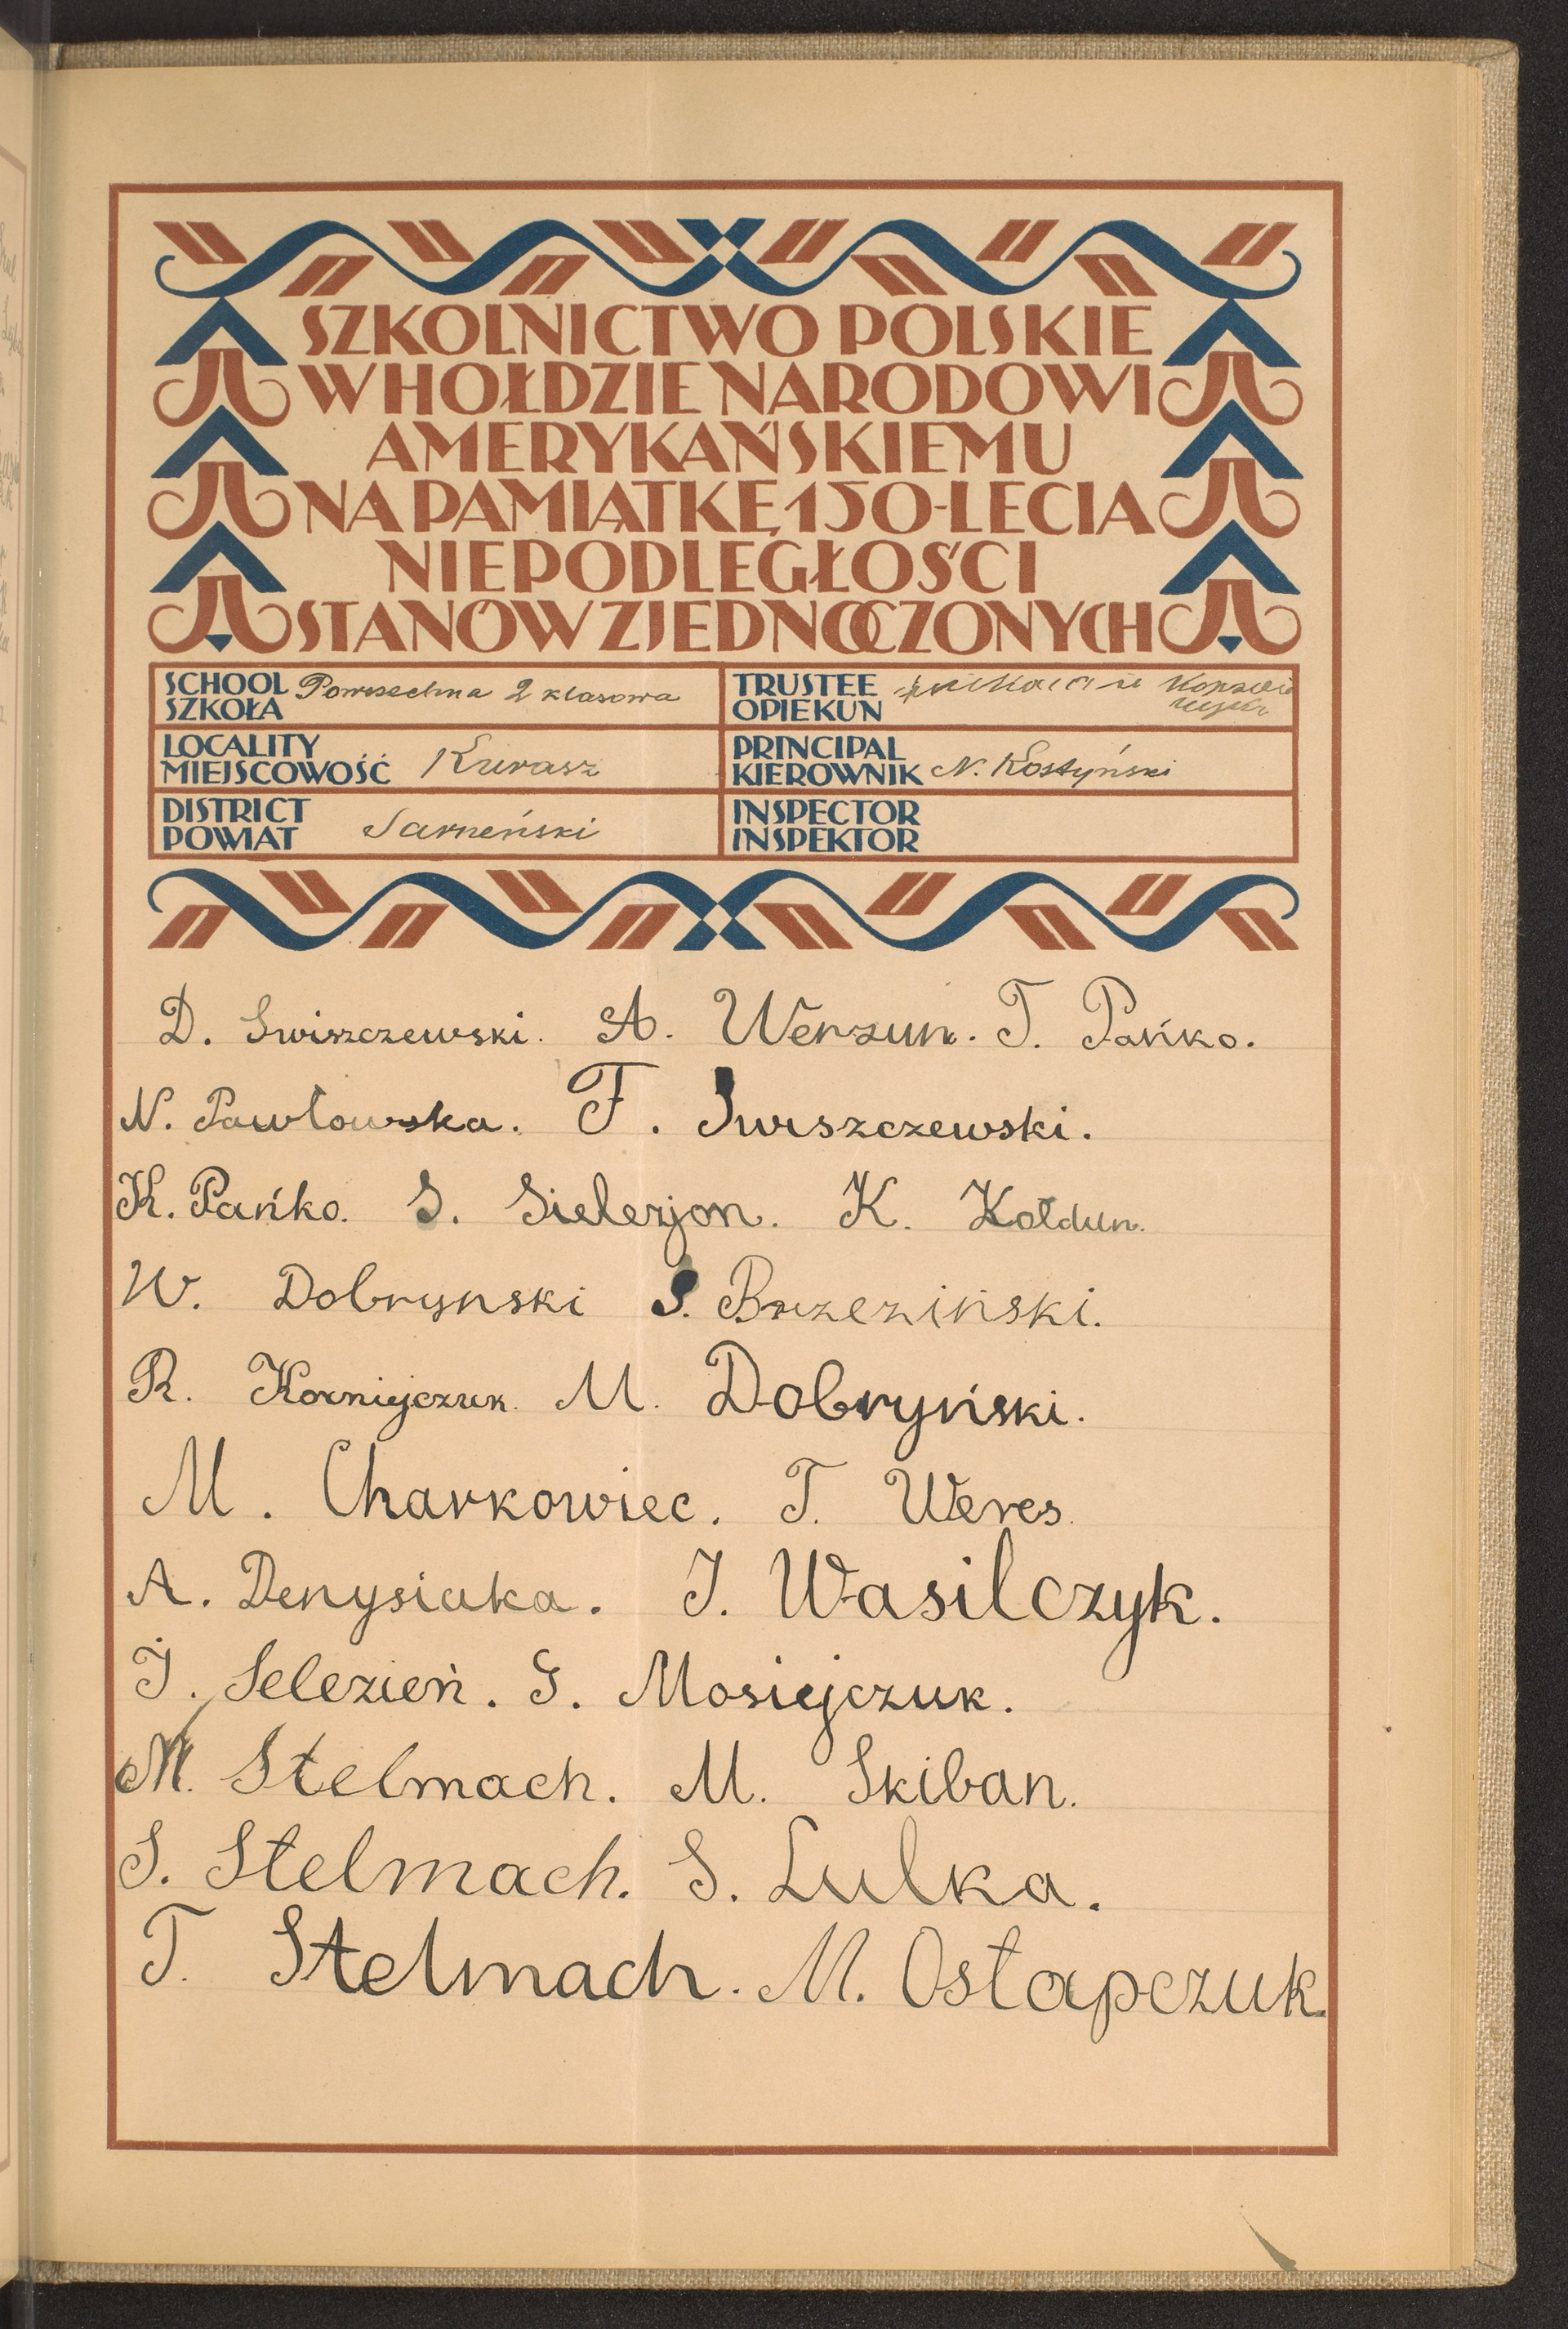 SZKOLNICTWO POLSKIE
W HOŁDZIE NARODOWI
AMERYKAŃSKIEMU
NA PAMIĄTKĘ 150-LECIA
NIEPODLEGŁOŚCI
STANÓW ZJEDNOCZONYCH
SCHOOL
SZKOŁA Powszechna 2 klasowa
TRUSTEE
OPIEKUN
LOCALITY
MIEJSCOWOŚĆ Kurasz
PRINCIPAL
KIEROWNIK N. Kostyński
DISTRICT
POWIAT Sarneński
INSPECTOR
INSPEKTOR
D. Swiszczewski. A. Werzun. T. Pańko.
N. Pawłowska. F. Swiszczewski.
K. Pańko. S. Sielezjon. K. Kołdun.
W. Dobrynski S. Brzeziński.
R. Korniejczuk. M. Dobryński.
M. Charkowiec. T. Weres.
A. Denysiuka. J. Wasilczyk.
J. Selezień. S. Mosiejczuk.
M. Stelmach. M. Skiban.
S. Stelmach. S. Lulka.
T. Stelmach. M. Ostapczuk.